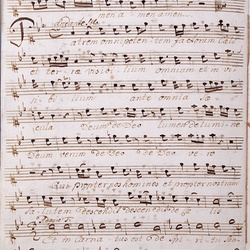 men a men amen.
Patrem omnipotentem factorem coeli
et terrae visibilium omnium et in visi
bilium ante omnia sae
cula Deum de Deo lumen de lumine
Deum verum de Deo de Deo vero
Qui propter nos homines et propter nostram
salutem descendit descendit de coelis
Et in carnatus est de spiritu san